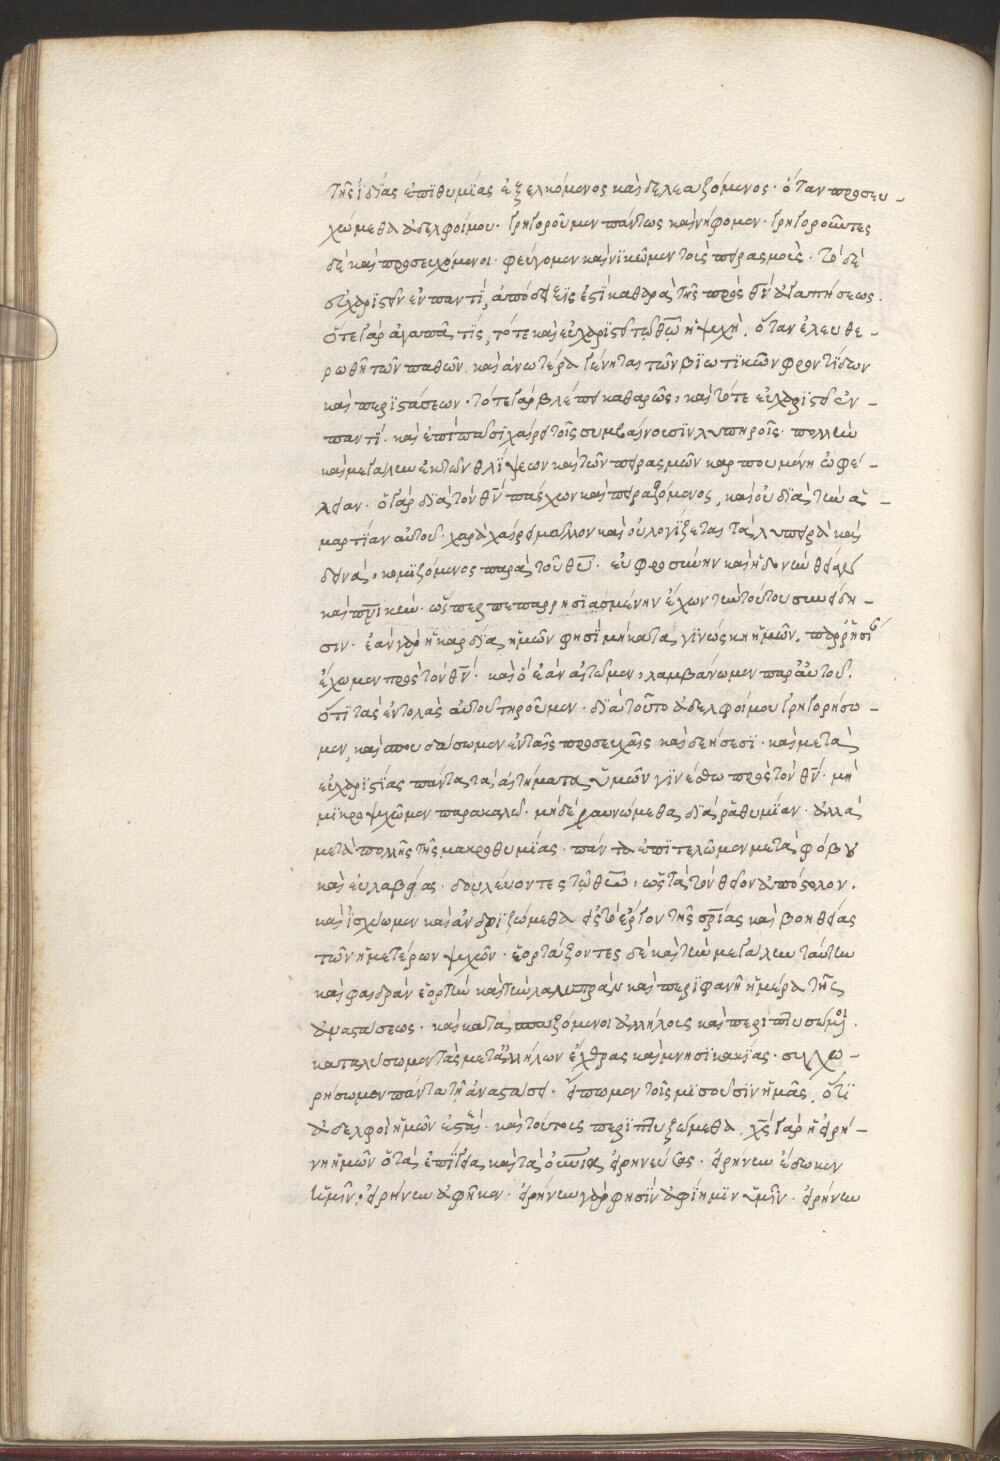 τῆς ἰδίας ἐπιθυμίας ἐξελκόμενος καὶ δελεαζόμενος· ὅταν προσευ-
χώμεθα ἀδελφοί μου· γρηγοροῦμεν πάντως καὶ νήφομεν· γρηγοροῦντες
δὲ καὶ προσευχόμενοι· φεύγομεν καὶ νικῶμεν τοὺς πειρασμούς· τὸ δὲ
εὐχαριστεῖν ἐν παντί, ἀπόδειξις ἐστὶ καθαρὰ τῆς πρὸς θν̅ ἀγαπήσεως.
ὅτε γὰρ ἀγαπᾶ τίς, τότε καὶ εὐχαριστεῖ τῷ θω̅ ἡ ψυχή. ὅταν ἐλευθε-
ρωθῆ τῶν παθῶν. καὶ ἀνωτέρα γένηται τῶν βιωτικῶν φροντίδων
καὶ περιστάσεων· τότε γὰρ βλέπει καθαρῶς, καὶ τότε εὐχαριστεῖ ἐν-
παντί. καὶ ἐπὶ πᾶσι χαίρει τοῖς συμβαίνουσιν λυπηροῖς. πολλὴν
καὶ μεγάλην ἐκ τῶν θλίψεων καὶ τῶν πειρασμῶν καρπουμένη ὠφέ-
λειαν. ὁ γὰρ διὰ τὸν θν̅ πάσχων καὶ πειραζόμενος, καὶ οὐ διὰ τὴν ἁ-
μαρτίαν αὐτοῦ· χαρᾶ χαίρει μᾶλλον καὶ οὐ λογίζεται τὰ λυπηρὰ καὶ
δεινά, κομιζόμενος παρὰ τοῦ θυ̅. εὐφροσύνην καὶ ἡδονὴν θείαν
καὶ πν̅ικήν· ὥσπερ πεπαρρησιασμένην ἔχων τὴν τούτου συνείδη-
σιν. ἐὰν γὰρ ἡ καρδία ἡμῶν φησὶ μὴ καταγινώσκη ἡμῶν. παρρησί
ἔχωμεν πρὸς τὸν θν̅. καὶ ὃ ἐὰν αἰτῶμεν, λαμβάνωμεν παρ' αὐτοῦ.
ὅτι τὰς ἐντολὰς αὐτοῦ τηροῦμεν. διὰ τοῦτο ἀδελφοί μου γρηγορήσω-
μεν, καὶ σπουδάσωμεν ἐν ταῖς προσευχαῖς καὶ δεήσεσι. καὶ μετὰ
εὐχαριστίας πάντα τὰ αἰτήματα ὑμῶν γινέσθω πρὸς τὸν θν̅. μὴ
μικροψυχῶμεν παρακαλῶ. μηδὲ χαυνώμεθα διὰ ῥαθυμίαν. ἀλλὰ
μετὰ πολλῆς τῆς μακροθυμίας. πάντα ἐπιτελῶμεν μετὰ φόβου
καὶ εὐλαβείας. δουλεύοντες τῷ θεῶ, ὥς τὰ τὸν θεῖον ἀπόστολον.
καὶ ἰσχύωμεν καὶ ἀνδριζώμεθα εἰς τὸ ἔργον τῆς σρ̅ίας καὶ βοηθείας
τῶν ἡμετέρων ψυχῶν. ἑορτάζοντες δὲ καὶ τὴν μεγάλην ταύτην
καὶ φαιδρὰν ἑορτὴν καὶ τὴν λαμπρὰν καὶ περιφανῆ ἡμέρα τῆς
ἀναστάσεως. καὶ κατασπαζόμενοι ἀλλήλους καὶ περιπτυσώμοι.
καταλύσωμεν τὰς μετ' ἀλλήλων ἔχθρας καὶ μνησικακίας. συγχω-
ρήσωμεν πάντα τῇ ἀναστάσει. εἴπωμεν τοῖς μισοῦσιν ἡμᾶς, ὅτι
ἀδελφοὶ ἡμῶν ἐστέ. καὶ τούτους περιπτυξώμεθα. χς̅ γὰρ ἡ εἰρή-
νη ἡμῶν ὁ τὰ ἐπίγεια καὶ τὰ οὐνια εἰρηνεύσας. εἰρήνην ἔδωκεν
ὑμῖν. εἰρήνην ἀφῆκεν. εἰρήνην γὰρ φησὶν ἀφίημιν ὑμῖν. εἰρήνην